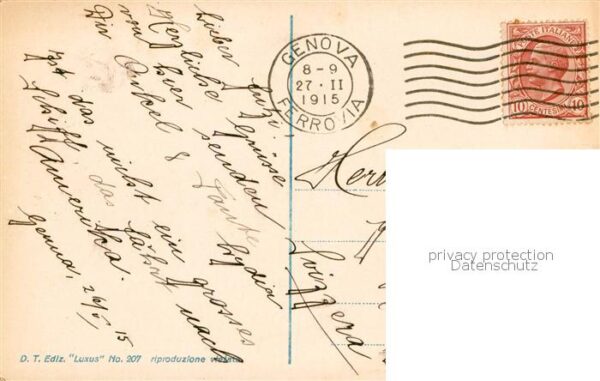 Lieber Fritz!
Herzliche Grüsse
von hier senden
Dir Onkel & Tante Lydia
Ist das nicht ein grosses
Schiff das fährt nach
Amerika.
Genua, 26/II 15
GENOVA
8-9
27·II
1915
FERROVIA
POSTE ITALIANE
10 CENTESIMI 10
Herr
Svizzera
privacy protection
Datenschutz
D. T. Ediz. "Luxus" No. 207 riproduzione vietata